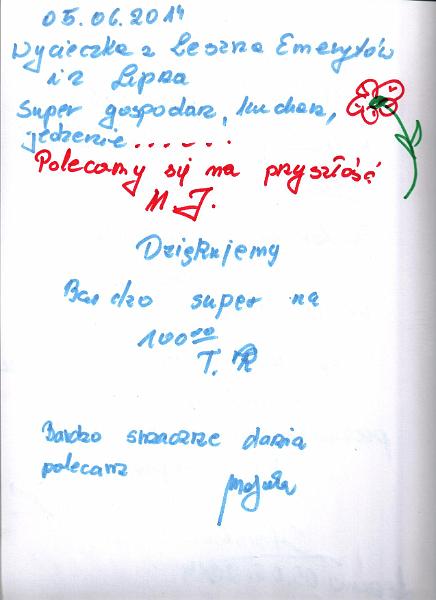 05.06.2014
Wycieczka z Leszna Emerytów
i z Lipna
Super gospodarz, kucharz,
jedzenie.......
Polecamy się na przyszłość
M.J.
Dziękujemy
Bardzo super na
100%
T. R
Bardzo smaczne dania
polecam